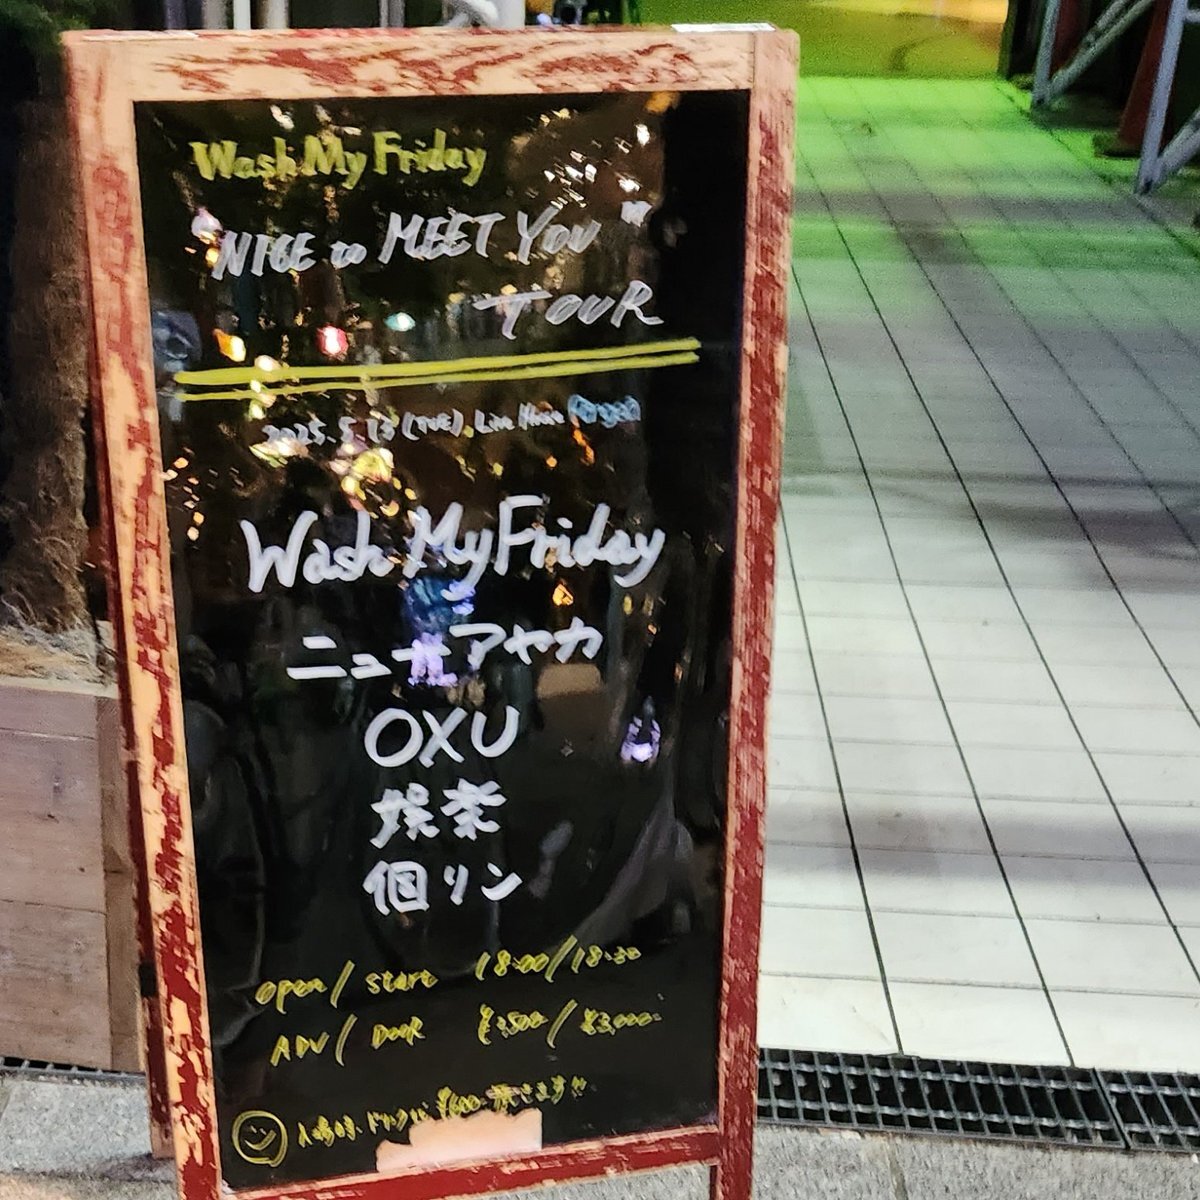 Wash My Friday
"NICE to MEET YOU"
TOUR
2025.5.13 (TUE). Live House Pangea
Wash My Friday
ニューアヤカ
OXU
娯茶
個リン
open / start 18:00 / 18:30
ADV / DOOR ¥2,500- / ¥3,000-
入場時、ドリンク代 ¥600- 頂きます!!